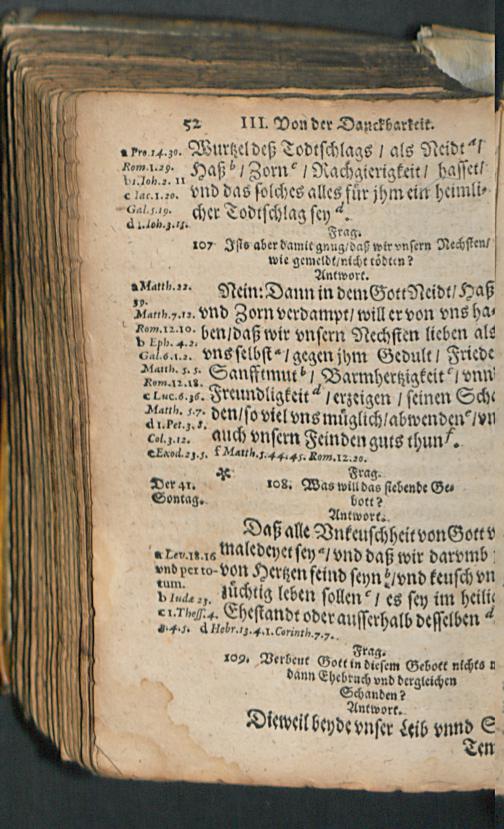 52 III. Von der Danckbarkeit.
a Pro.14.30. Wurtzel deß Todtschlags / als Neidt a /
Rom.1.29. Haß b / Zorn c / Rachgierigkeit / hasset /
b 1.Ioh.2.11 vnd das solches alles für jhm ein heimli-
c Iac.1.20. cher Todtschlag sey d.
Gal.5.19.
d 1.Ioh.3.15.
Frag.
107 Ists aber damit gnug / daß wir vnsern Nechsten /
wie gemeldt / nicht tödten?
Antwort.
a Matth.22. Nein: Dann in dem Gott Neidt / Haß
39. vnd Zorn verdampt / will er von vns ha-
Matth.7.12.
Rom.12.10. ben / daß wir vnsern Nechsten lieben als
b Eph.4.2. vns selbst a / gegen jhm Gedult / Friede
Gal.6.1.2.
Matth.5.5. Sanfftmut b / Barmhertzigkeit c / vnn
Rom.12.18. Freundligkeit d / erzeigen / seinen Sch
c Luc.6.36.
Matth.5.7. den / so viel vns müglich / abwenden e / vn
d 1.Pet.3.8.
Col.3.12. auch vnsern Feinden guts thun f.
e Exod.23.5. f Matth.5.44.45. Rom.12.20.
Der 41.
Sontag.
Frag.
108. Was will das siebende Ge-
bott?
Antwort.
Daß alle Vnkeuschheit von Gott v
a Lev.18.16 maledeyet sey a / vnd daß wir darvmb
vnd per to- von Hertzen feind seyn b / vnd keusch vn
tum. züchtig leben sollen c / es sey im heili
b Iudæ 23.
c 1.Thess.4. Ehestandt oder ausserhalb desselben d
3.4.5. d Hebr.13.4.1.Corinth.7.7.
Frag.
109. Verbeut Gott in diesem Gebott nichts
dann Ehebruch vnd dergleichen
Schanden?
Antwort.
Dieweil beyde vnser Leib vnnd S
Tem